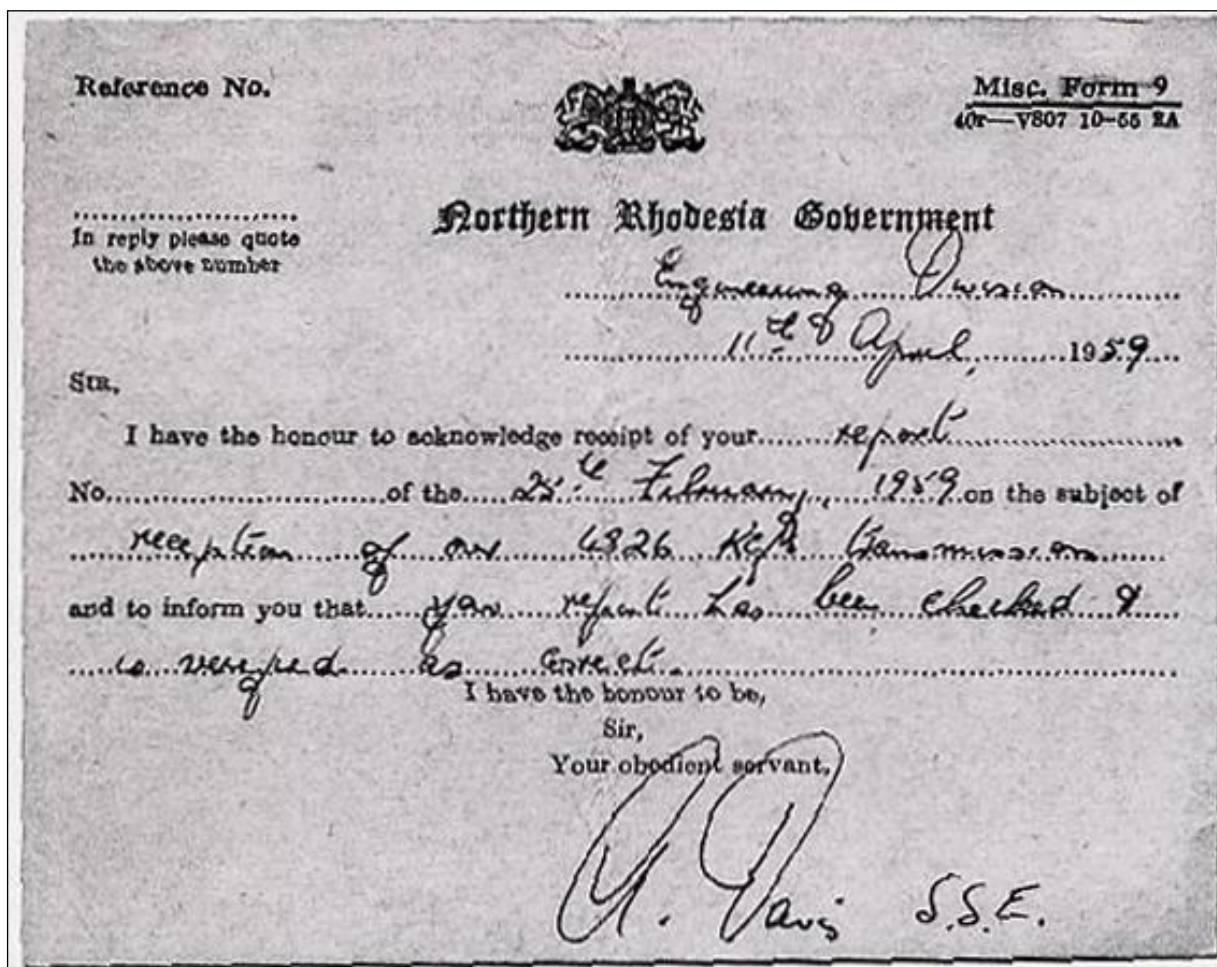 Reference No.
Misc. Form 9
40r—V807 10-55 RA
In reply please quote
the above number
Northern Rhodesia Government
Engineering Division
11th April, 1959
SIR,
I have the honour to acknowledge receipt of your report
No. of the 25th February, 1959 on the subject of
reception of our 4826 Kc/s transmission
and to inform you that your report has been checked &
is verified as correct.
I have the honour to be,
Sir,
Your obedient servant,
Davis S.S.E.